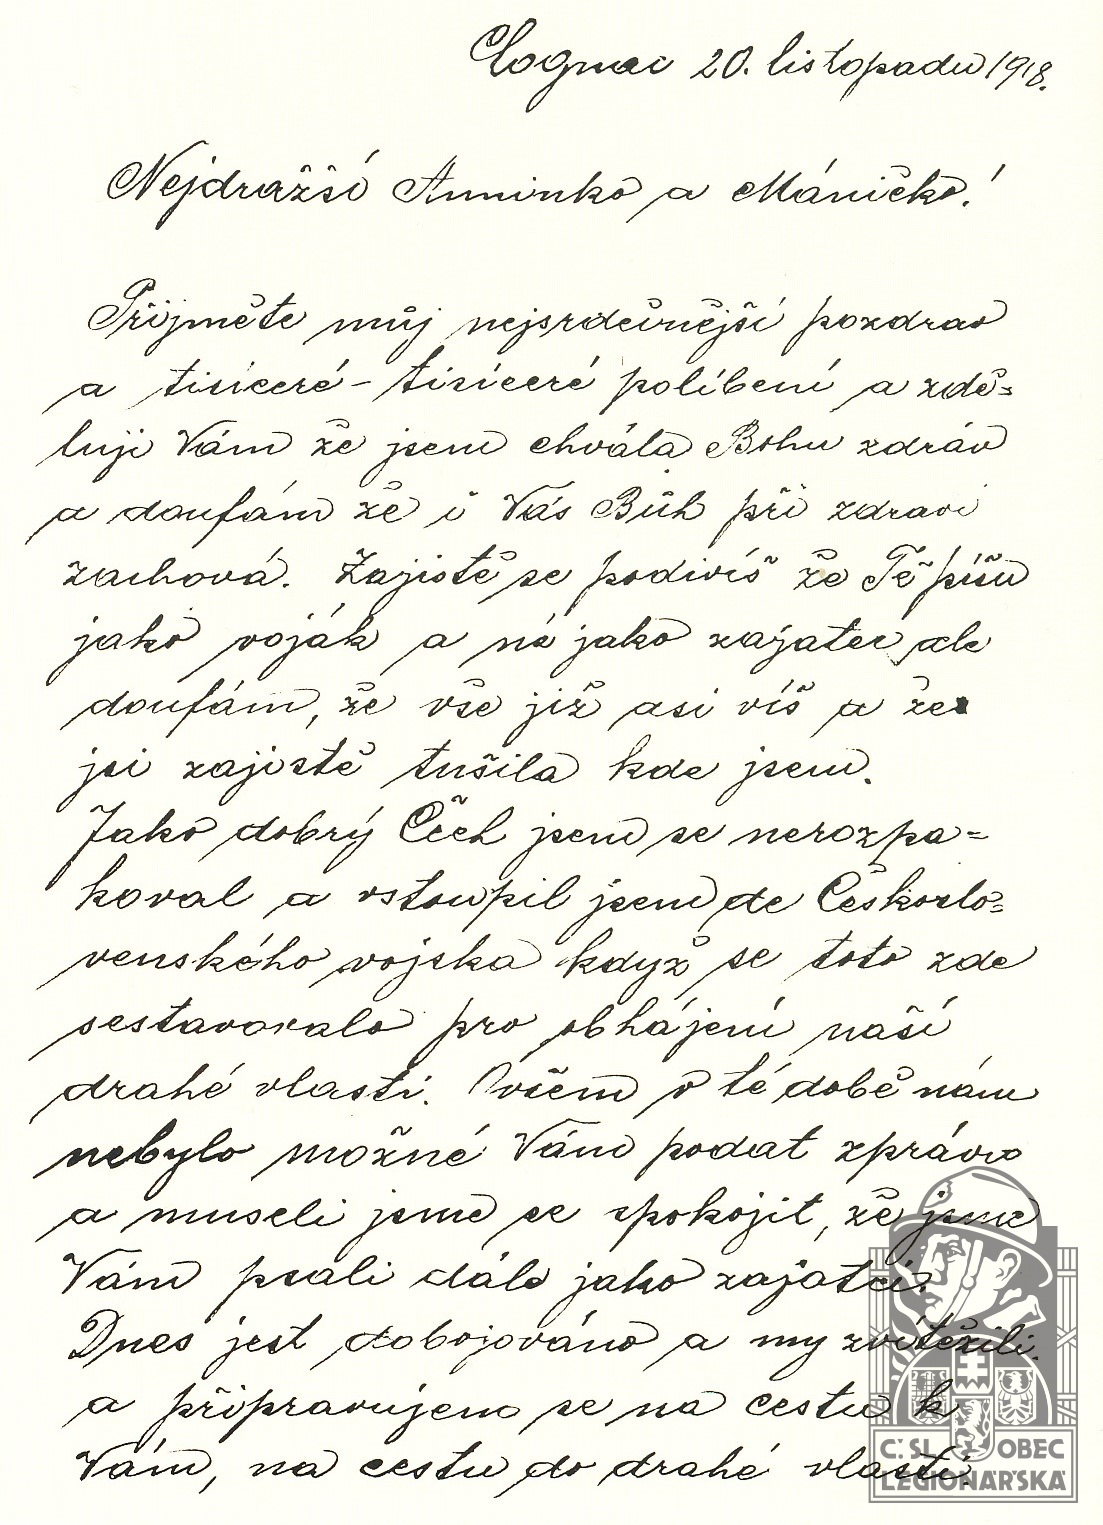 Cognac 20. listopadu 1918.
Nejdražší Anninko a Máničko!
Přijměte můj nejsrdečnější pozdrav
a tisíceré - tisíceré políbení a zdě-
luji Vám že jsem chvála Bohu zdráv
a doufám že i Vás Bůh při zdraví
zachová. Zajistě se podivíš že Tě píšu
jako voják a ne jako zajatec ale
doufám, že vše již asi víš a že
jsi zajistě tušila kde jsem.
Jako dobrý Čech jsem se nerozpa-
koval a vstoupil jsem do Českoslo-
venského vojska když se toto zde
sestavovalo pro obhájení naší
drahé vlasti. Ovšem v té době nám
nebylo možné Vám podat zprávu
a museli jsme se spokojit, že jsme
Vám psali dále jako zajatci.
Dnes jest dobojováno a my zvítězili
a připravujem se na cestu k
Vám, na cestu do drahé vlasti.
Č.SL. OBEC
LEGIONÁŘSKÁ